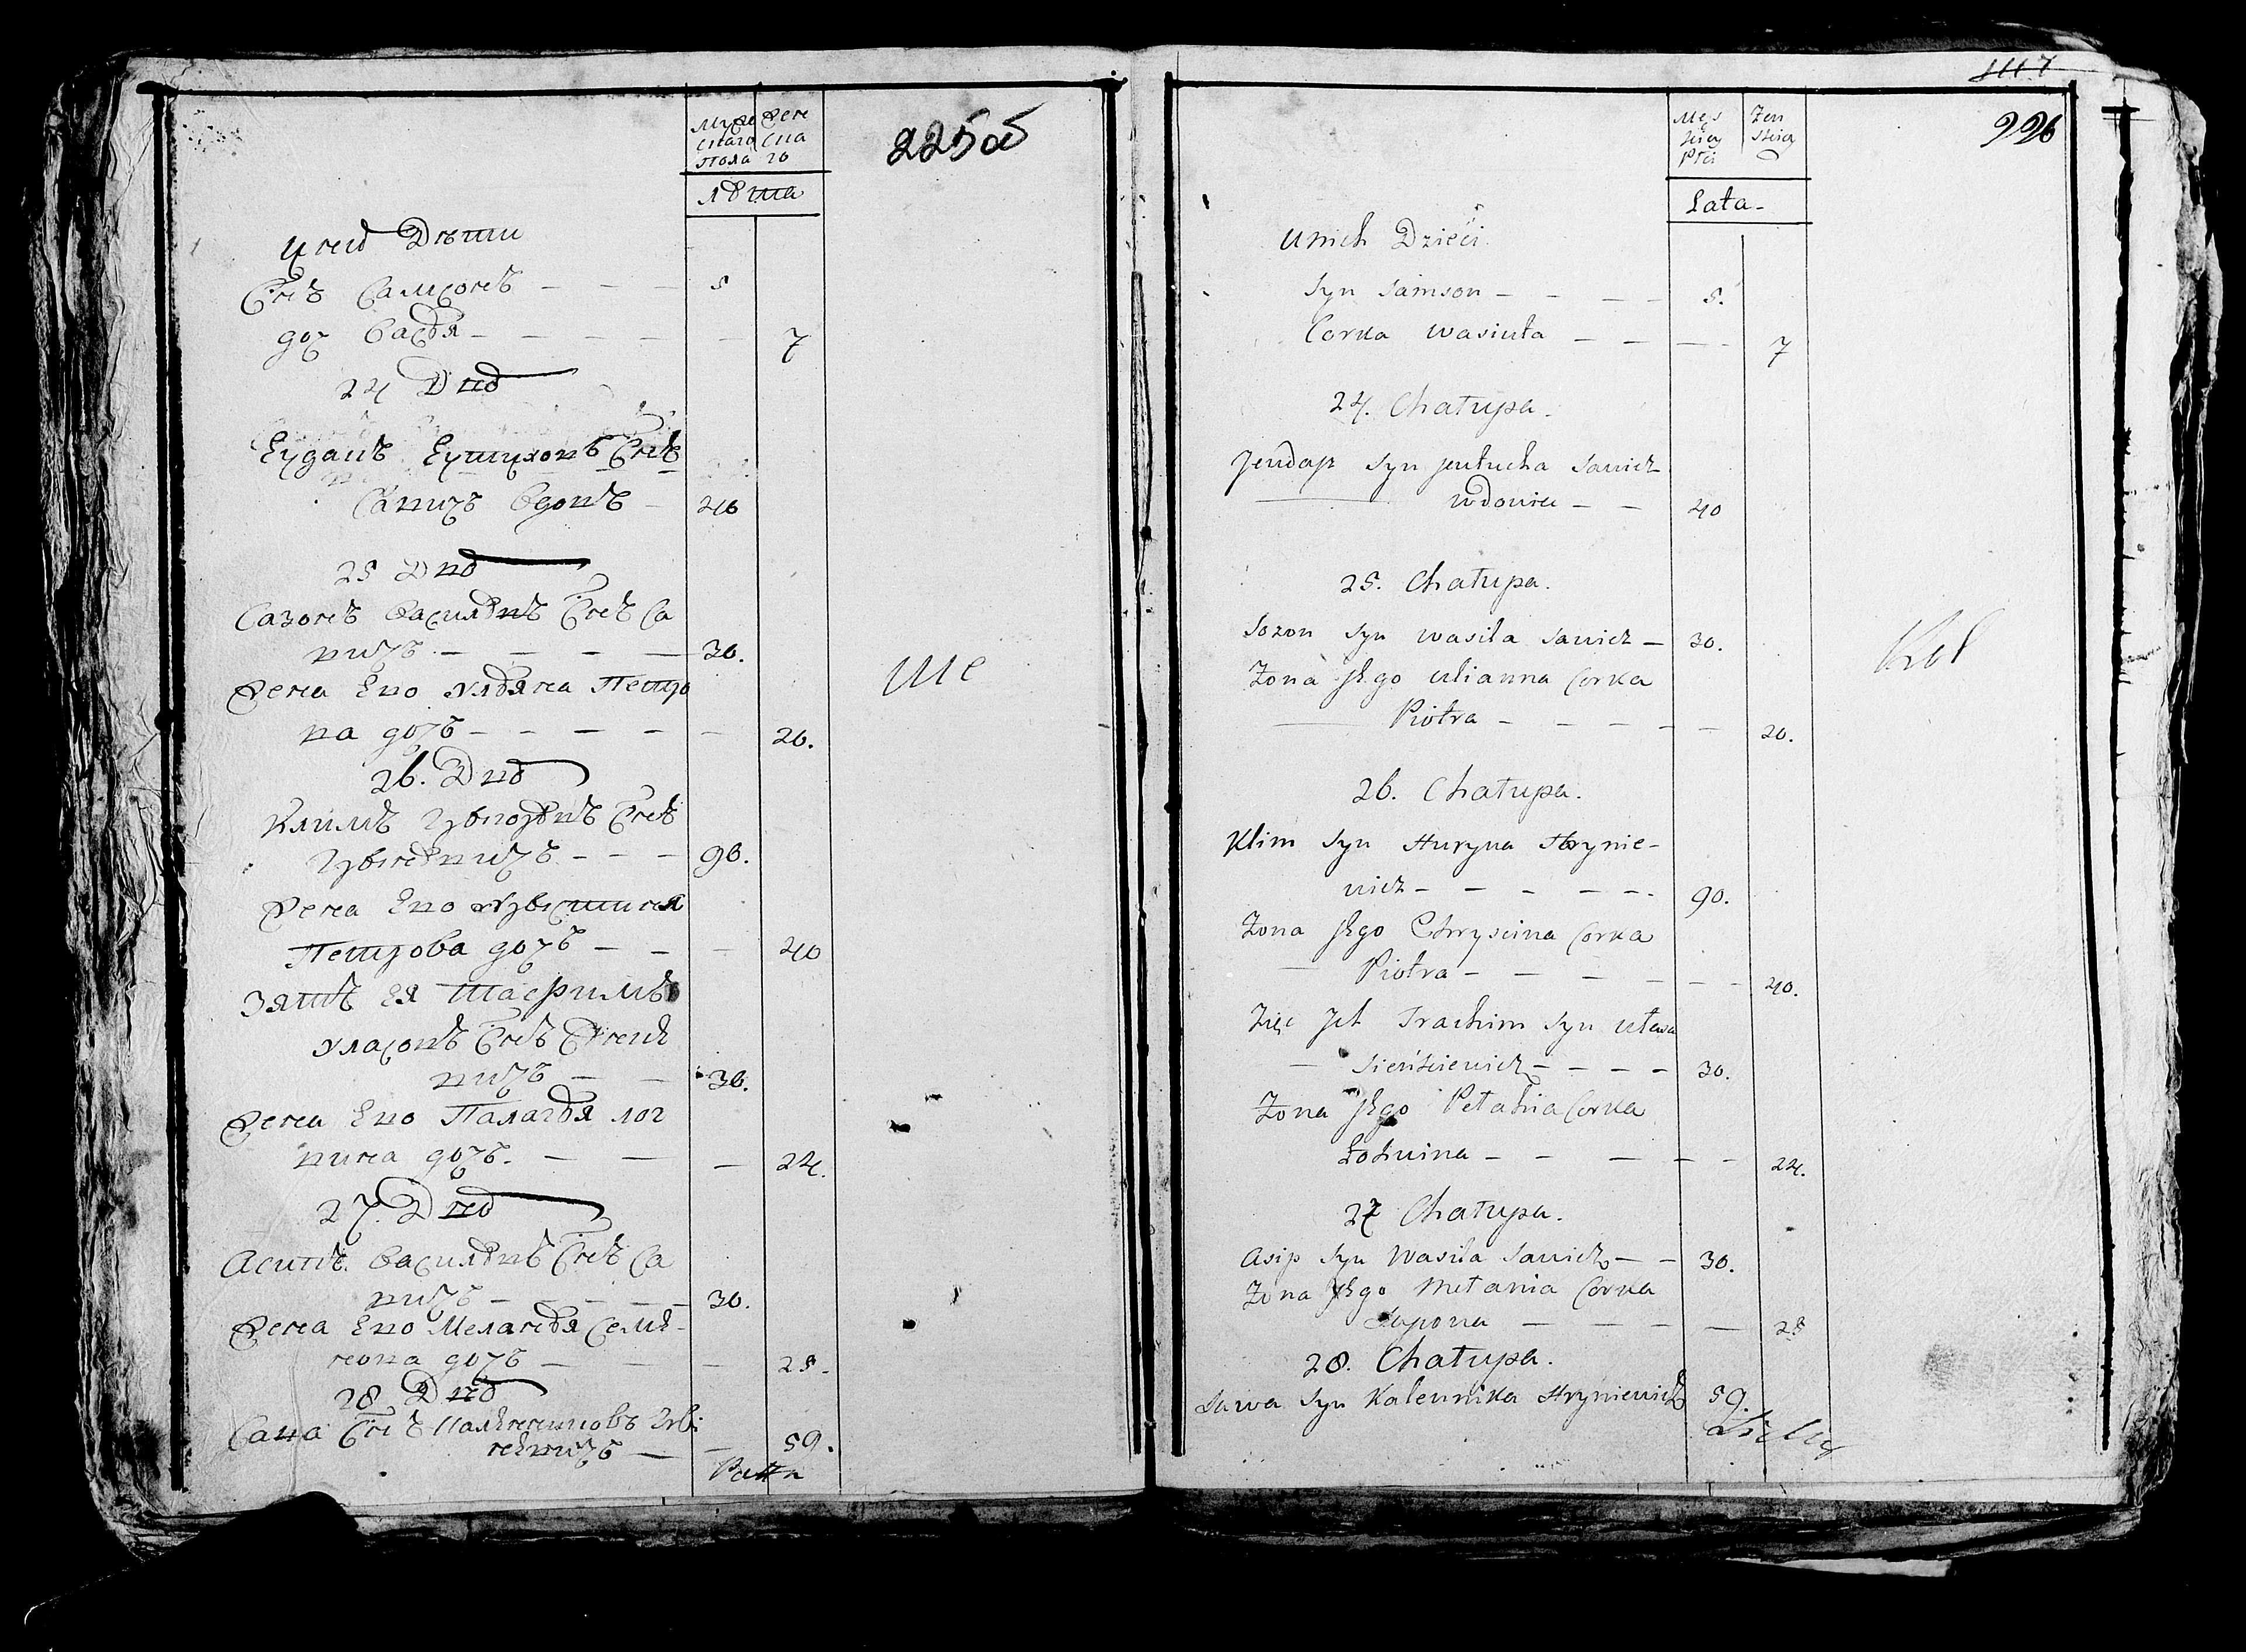 Муже Жен
скаго ска
Пола го
225об
лѣта
У нихъ Дѣти
Снъ Самсонъ — — — 5
доч Васья — — — — — 7
24 Двор
Евдапъ Евтуховъ Снъ
Савичъ вдовъ — 40
25 Двор
Сазонъ Васильевъ Снъ Са
вичъ — — — — 30.
Жена Его Ульяна Петро
ва дочь — — — — — 20.
26. Двор
Климъ Гурыновъ Снъ
Грыневичъ — — — 90.
Жена Его Хрыстиня
Петрова дочь — — — 40
Зять Ея Трафимъ
Уласовъ Снъ
вичъ — — 30.
Жена Его Палагья Лог
вина дочь. — — — 24.
27. Двор
Асипъ Васильевъ Снъ Са
вичъ — — — — — 30.
Жена Его Меланья
дочь — — — 25.
28 Двор
Сава Снъ Гры
невичъ — — 59.
ше
1117
Męs Zen
kiey skiey
Płci
226
Lata —
U nich Dzieci
Syn Samson — — — — 5.
Corka Wasiuta — — — — 7
24. Chałupa.
Jewdap Syn Jewtucha Sawicz
Wdowiec — — 40
25. Chałupa.
Sozon Syn Wasila Sawicz — 30.
Zona Jego Ulianna Corka
Piotra — — — — — — 20.
26. Chałupa.
Klim Syn Huryna Hrynie-
wicz — — — — — 90.
Zona Jego Chryscina Corka
Piotra — — — — — — 40.
Zięc Ich Trachim Syn Uława
Sieńkiewicz — — — — 30.
Zona Jego Pelahia Corka
Łohwina — — — — — 24.
27 Chałupa.
Asip Syn Wasila Sawicz — — 30.
Zona Jego Melania Corka
— — — — 25
28. Chałupa.
Sawa Syn Kalennika Hryniewicz 59.